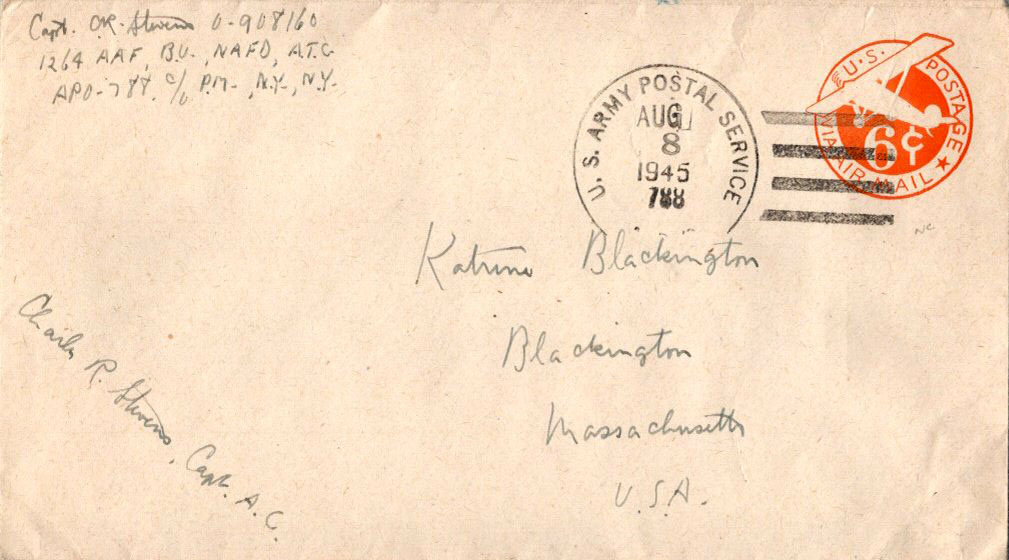 Capt. C.R. Stevens O-908160
1264 AAF, B.U., NAFD, A.T.C.
APO-788 c/o P.M., N.Y., N.Y.
U.S. ARMY POSTAL SERVICE
AUG
8
1945
788
U.S. POSTAGE
6¢
VIA AIR MAIL
NC
Katrina Blackington
Blackington
Massachusetts
U.S.A.
Charles R. Stevens, Capt. A.C.